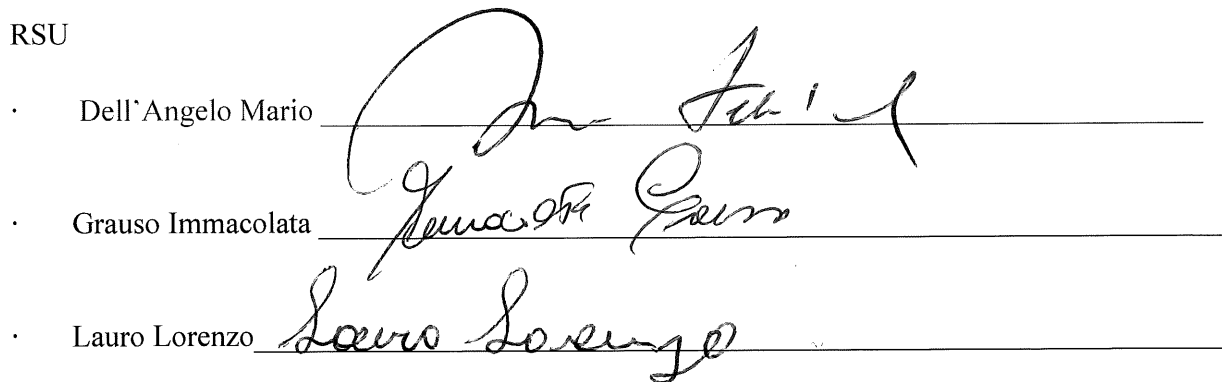 RSU
· Dell'Angelo Mario
· Grauso Immacolata Immacolata Grauso
· Lauro Lorenzo Lauro Lorenzo